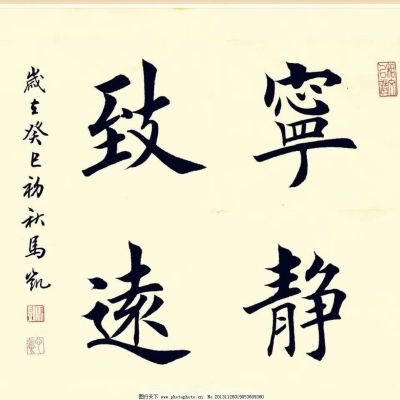 寧靜
致遠
歲在癸巳初秋馬凱
图行天下 www.photophoto.cn No.20131126019053605360